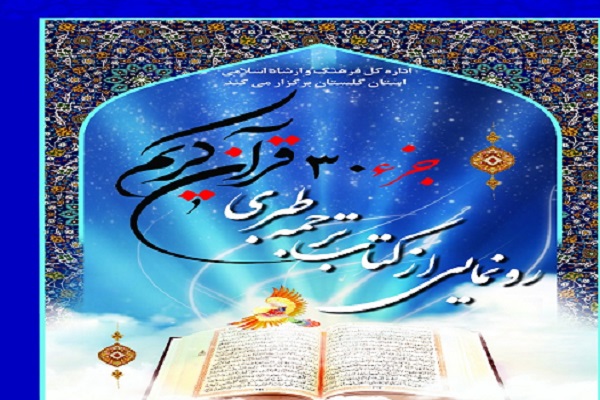 اداره کل فرهنگ و ارشاد اسلامی
استان گلستان برگزار می کند
رونمایی از کتاب ترجمه طبری
جزء ۳۰ قرآن کریم